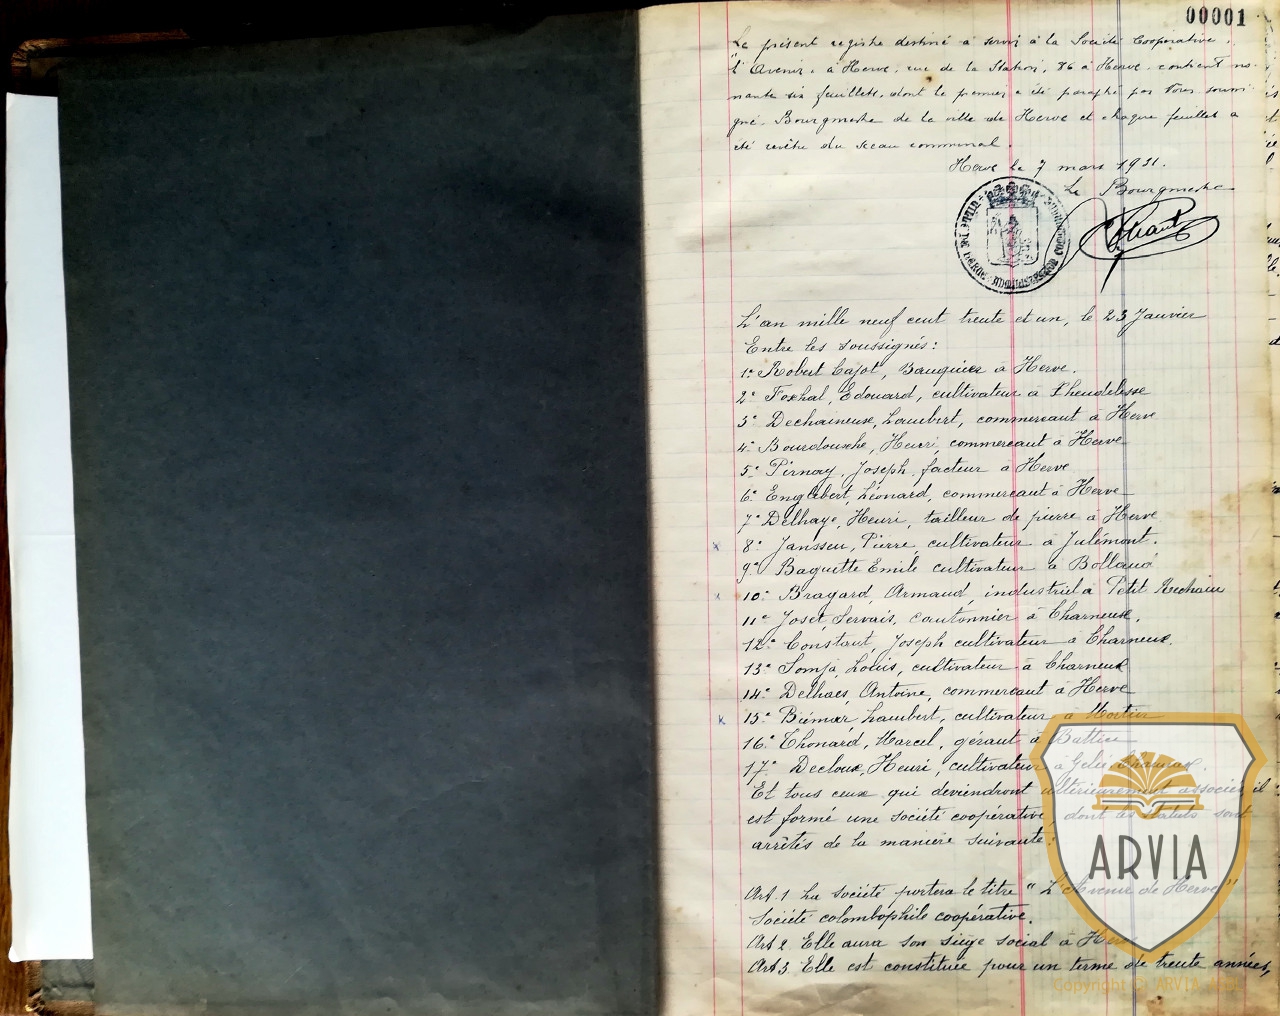 00001
Le présent registre destiné à servir à la Société Coopérative
"l'Avenir" à Herve, rue de la Station, 86 à Herve, contient no-
nante six feuillets, dont le premier a été paraphé par Nous soussi
gné, Bourgmestre de la ville de Herve et chaque feuillet a
été revêtu du sceau communal.
Herve le 7 mars 1931.
Le Bourgmestre
L'an mille neuf cent trente et un, le 23 Janvier
Entre les soussignés:
1° Robert Cajot, Banquier à Herve.
2° Foxhal, Edouard, cultivateur à Xhendelesse
3° Dechaineux, Lambert, commercant à Herve
4° Bourdouxhe, Henri, commercant à Herve
5° Pirnay, Joseph, facteur à Herve
6° Englebert, Léonard, commercant à Herve
7° Delhaye, Henri, tailleur de pierre à Herve
x 8° Janssen, Pierre, cultivateur à Julémont.
9° Baguette Emile cultivateur à Bolland
x 10° Bragard, Armand, industriel à Petit Rechain
11° Joset, Servais, cantonnier à Charneux.
12° Constant, Joseph cultivateur à Charneux.
13° Somja, Louis, cultivateur à Charneux
14° Delhaes, Antoine, commercant à Herve
x 15° Biémar Lambert, cultivateur à Mortier
16° Thonard, Marcel, gérant à Battice
17° Decloux, Henri, cultivateur à
Et tous ceux qui deviendront ultérieurement associés il
est formé une société coopérative dont les statuts sont
arrêtés de la manière suivante:
Art. 1 La société portera le titre "L'Avenir de Herve"
Société colombophile coopérative.
Art 2 Elle aura son siège social à Herve
Art 3 Elle est constituée pour un terme de trente années,
ARVIA
Copyright © ARVIA